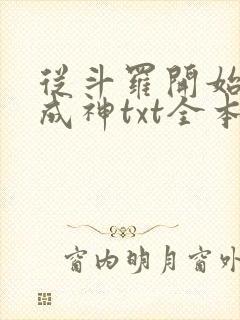 從斗羅開始
成神txt全本
窗内明月窗外